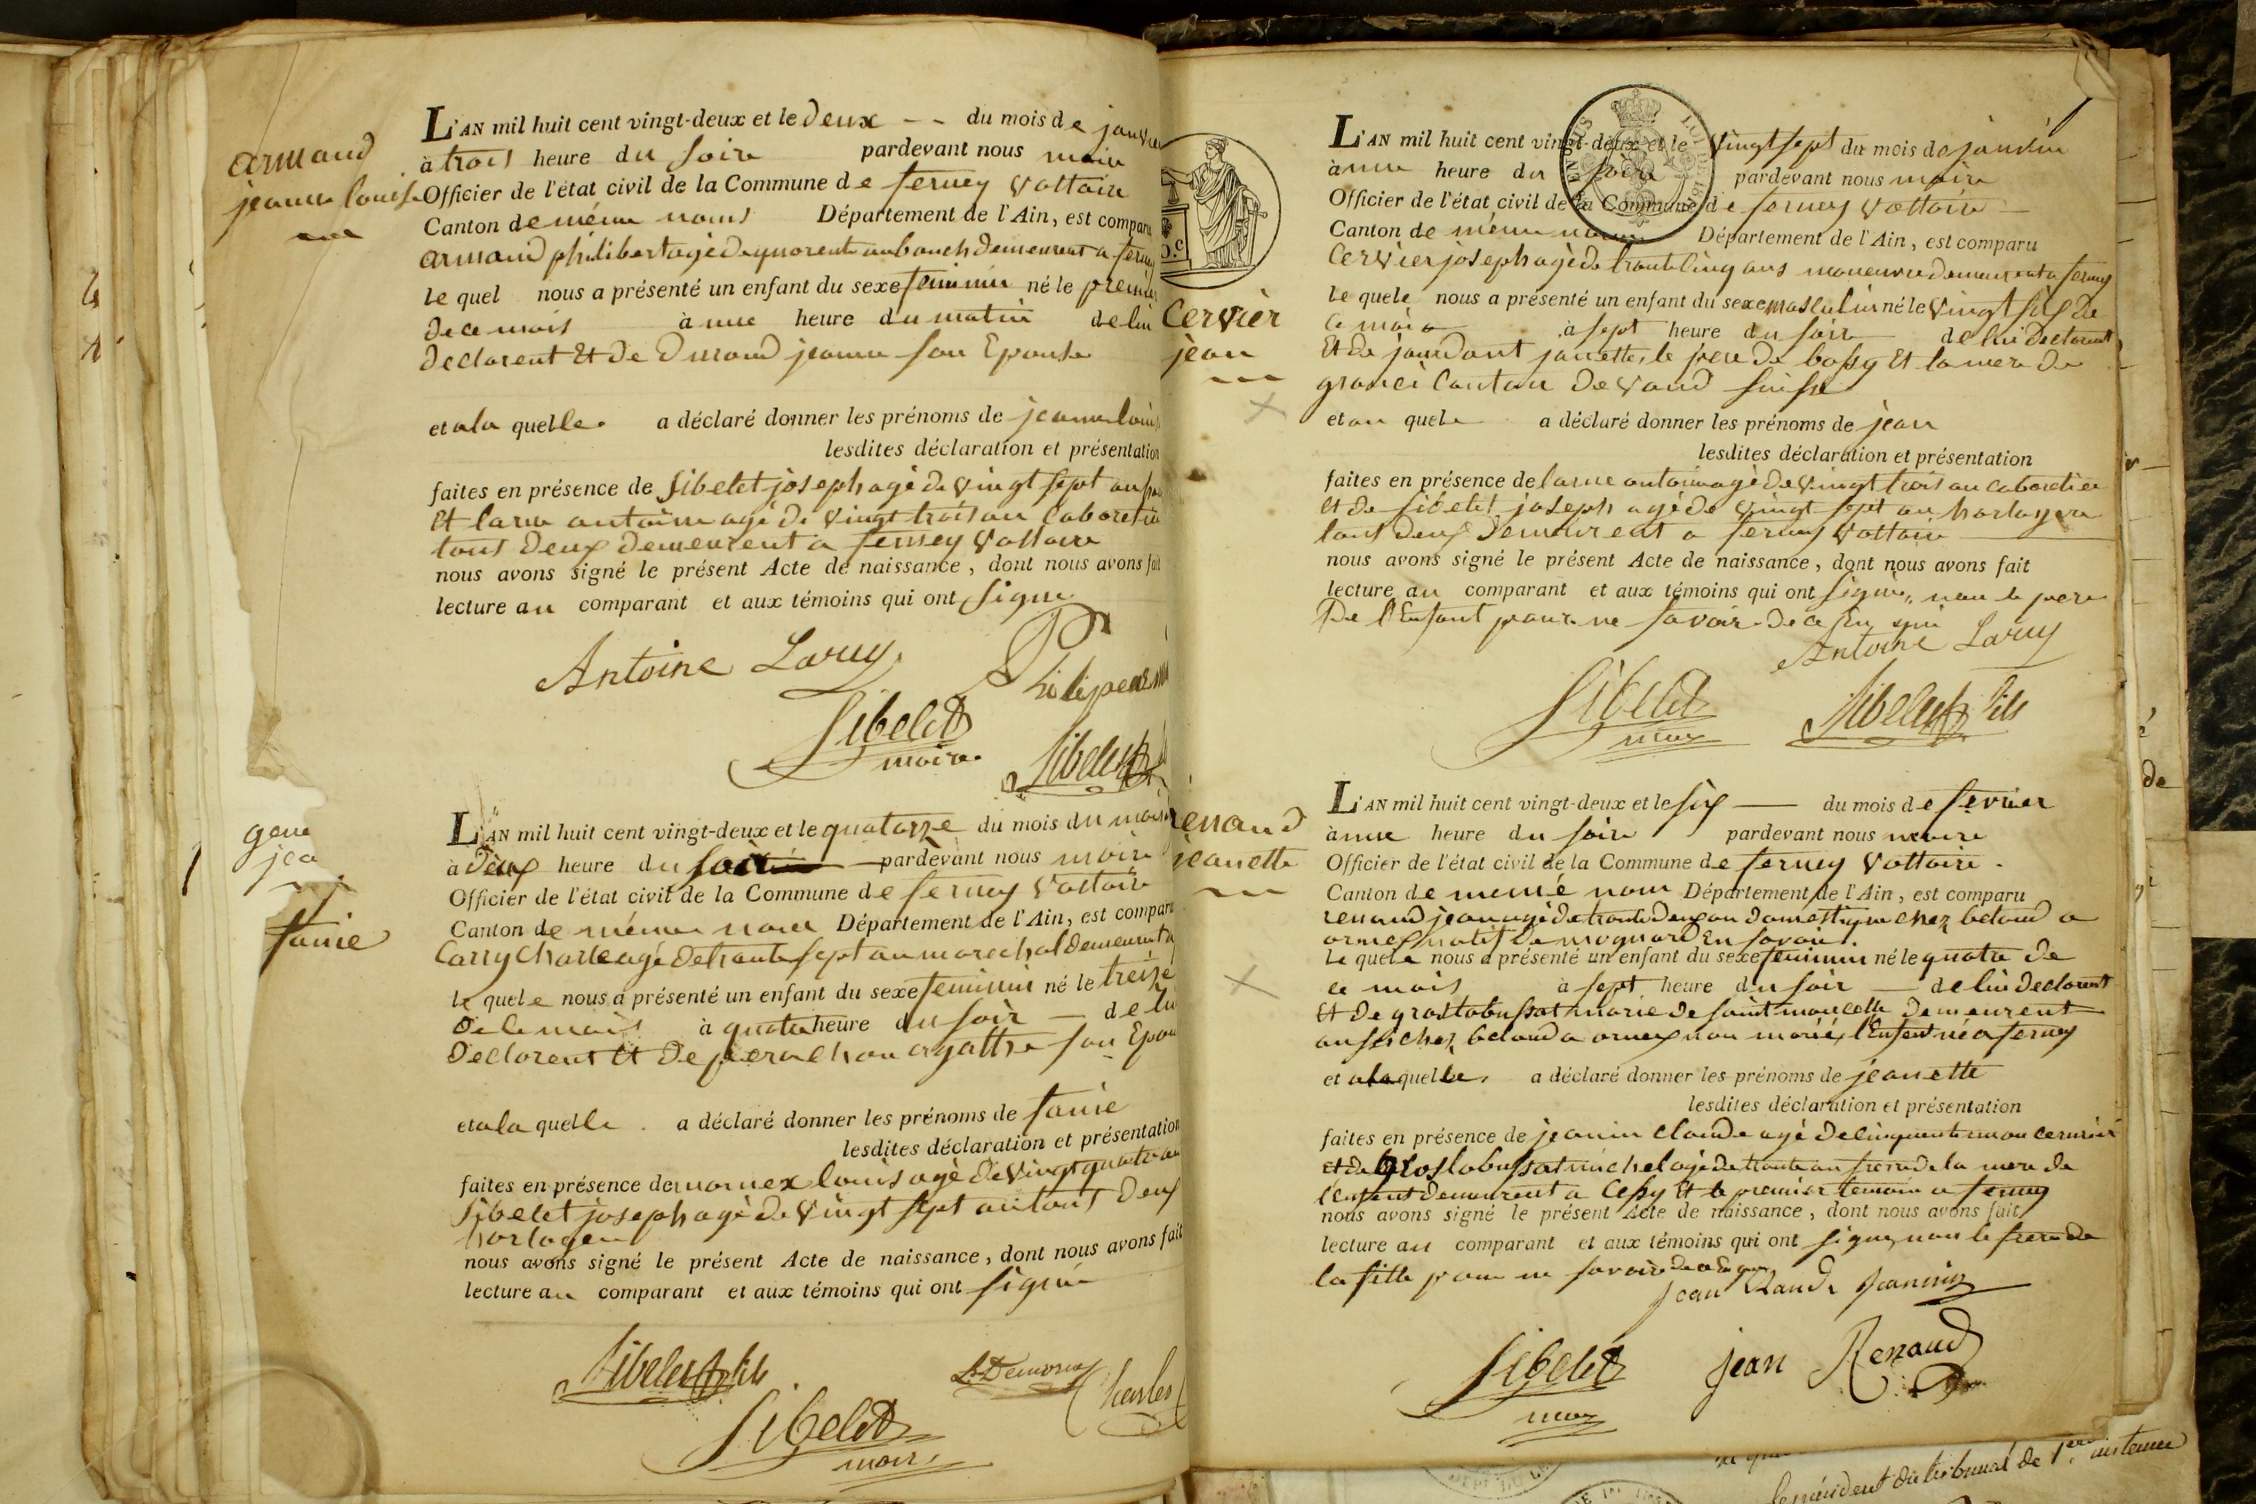 armand
jeanne louise
L'AN mil huit cent vingt-deux et le deux -- du mois de janvier
à trois heure du soir pardevant nous maire
Officier de l'état civil de la Commune de ferney Voltaire
Canton de même noms Département de l'Ain, est comparu
armand philibert agé de quarente an demeurent a ferney
le quel nous a présenté un enfant du sexe feminin né le premier
de ce mois à une heure du matin de lui
declarent Et de Durand jeanne son Epouse
et a la quelle a déclaré donner les prénoms de jeanne louise
lesdites déclaration et présentation
faites en présence de Sibelet joseph agé de vingt sept an
Et larue antoine agé de vingt trois an Cabaretier
tous deux demeurent a ferney Voltaire
nous avons signé le présent Acte de naissance, dont nous avons fait
lecture au comparant et aux témoins qui ont signé
Antoine Laruy
Sibelet
maire
Sibelet
gene
jea
fanie
L'AN mil huit cent vingt-deux et le quatorze du mois du mois
à deux heure du soir pardevant nous maire
Officier de l'état civil de la Commune de ferney Voltaire
Canton de même nom Département de l'Ain, est comparu
Carry Charle agé de trante sept an marechal demeurent a
le quele nous a présenté un enfant du sexe feminin né le treize
de ce mois à quatre heure du soir — de lui
Declarent Et de agathe son Epouse
et a la quelle a déclaré donner les prénoms de fanie
lesdites déclaration et présentation
faites en présence de louis agé de vingt quatre an
Sibelet joseph agé de vingt sept an tous deux
horlogeur
nous avons signé le présent Acte de naissance, dont nous avons fait
lecture au comparant et aux témoins qui ont signé
Sibelet fils
Charles
Sibelet
maire
Cervier
jean
L'AN mil huit cent vingt-deux et le vingt sept du mois de janvier
à une heure du soir pardevant nous maire
Officier de l'état civil de la Commune de ferney Voltaire
Canton de même nom Département de l'Ain, est comparu
Cervier joseph agé de trante cinq ans maneuvre demeurent a ferney
le quele nous a présenté un enfant du sexe masculin né le vingt six de
ce mois à sept heure du soir — de lui declarent
Et de jaudant janette, le pere de bossy Et la mere de
granci Canton de vaud suisse
et au quele a déclaré donner les prénoms de jean
lesdites déclaration et présentation
faites en présence de larue antoine agé de vingt trois an cabaretier
et de Sibelet joseph agé de vingt sept an horlogeur
tous deux demeurent a ferney Voltaire
nous avons signé le présent Acte de naissance, dont nous avons fait
lecture au comparant et aux témoins qui ont signé, non le pere
de l'Enfant pour ne savoir de ce
Antoine Laruy
Sibelet
maire
Sibelet fils
renaud
jeanette
L'AN mil huit cent vingt-deux et le six — du mois de fevrier
à une heure du soir pardevant nous maire
Officier de l'état civil de la Commune de ferney Voltaire.
Canton de memé nom Département de l'Ain, est comparu
renaud jean agé de trante deux an domestique chez betand a
ornex natif de mognard En savoie
le quele nous a présenté un enfant du sexe feminin né le quatre de
ce mois à sept heure du soir — de lui declarent
Et de groslabussat marie de saint demeurent
aussi chez betand a ornex non marié, l'Enfant né a ferney
et a la quelle a déclaré donner les prénoms de jeanette
lesdites déclaration et présentation
faites en présence de jeanin claude agé de cinquente un an
et de groslabussat michel agé de trante an frere de la mere de
l'enfant demeurent a Cessy Et le premier temoin a ferney
nous avons signé le présent Acte de naissance, dont nous avons fait
lecture au comparant et aux témoins qui ont signé, non le frere de
la fille pour ne savoir
jean Claude Jeannin
Sibelet
maire
jean Renaud
de
président du tribunal de 1ere instance